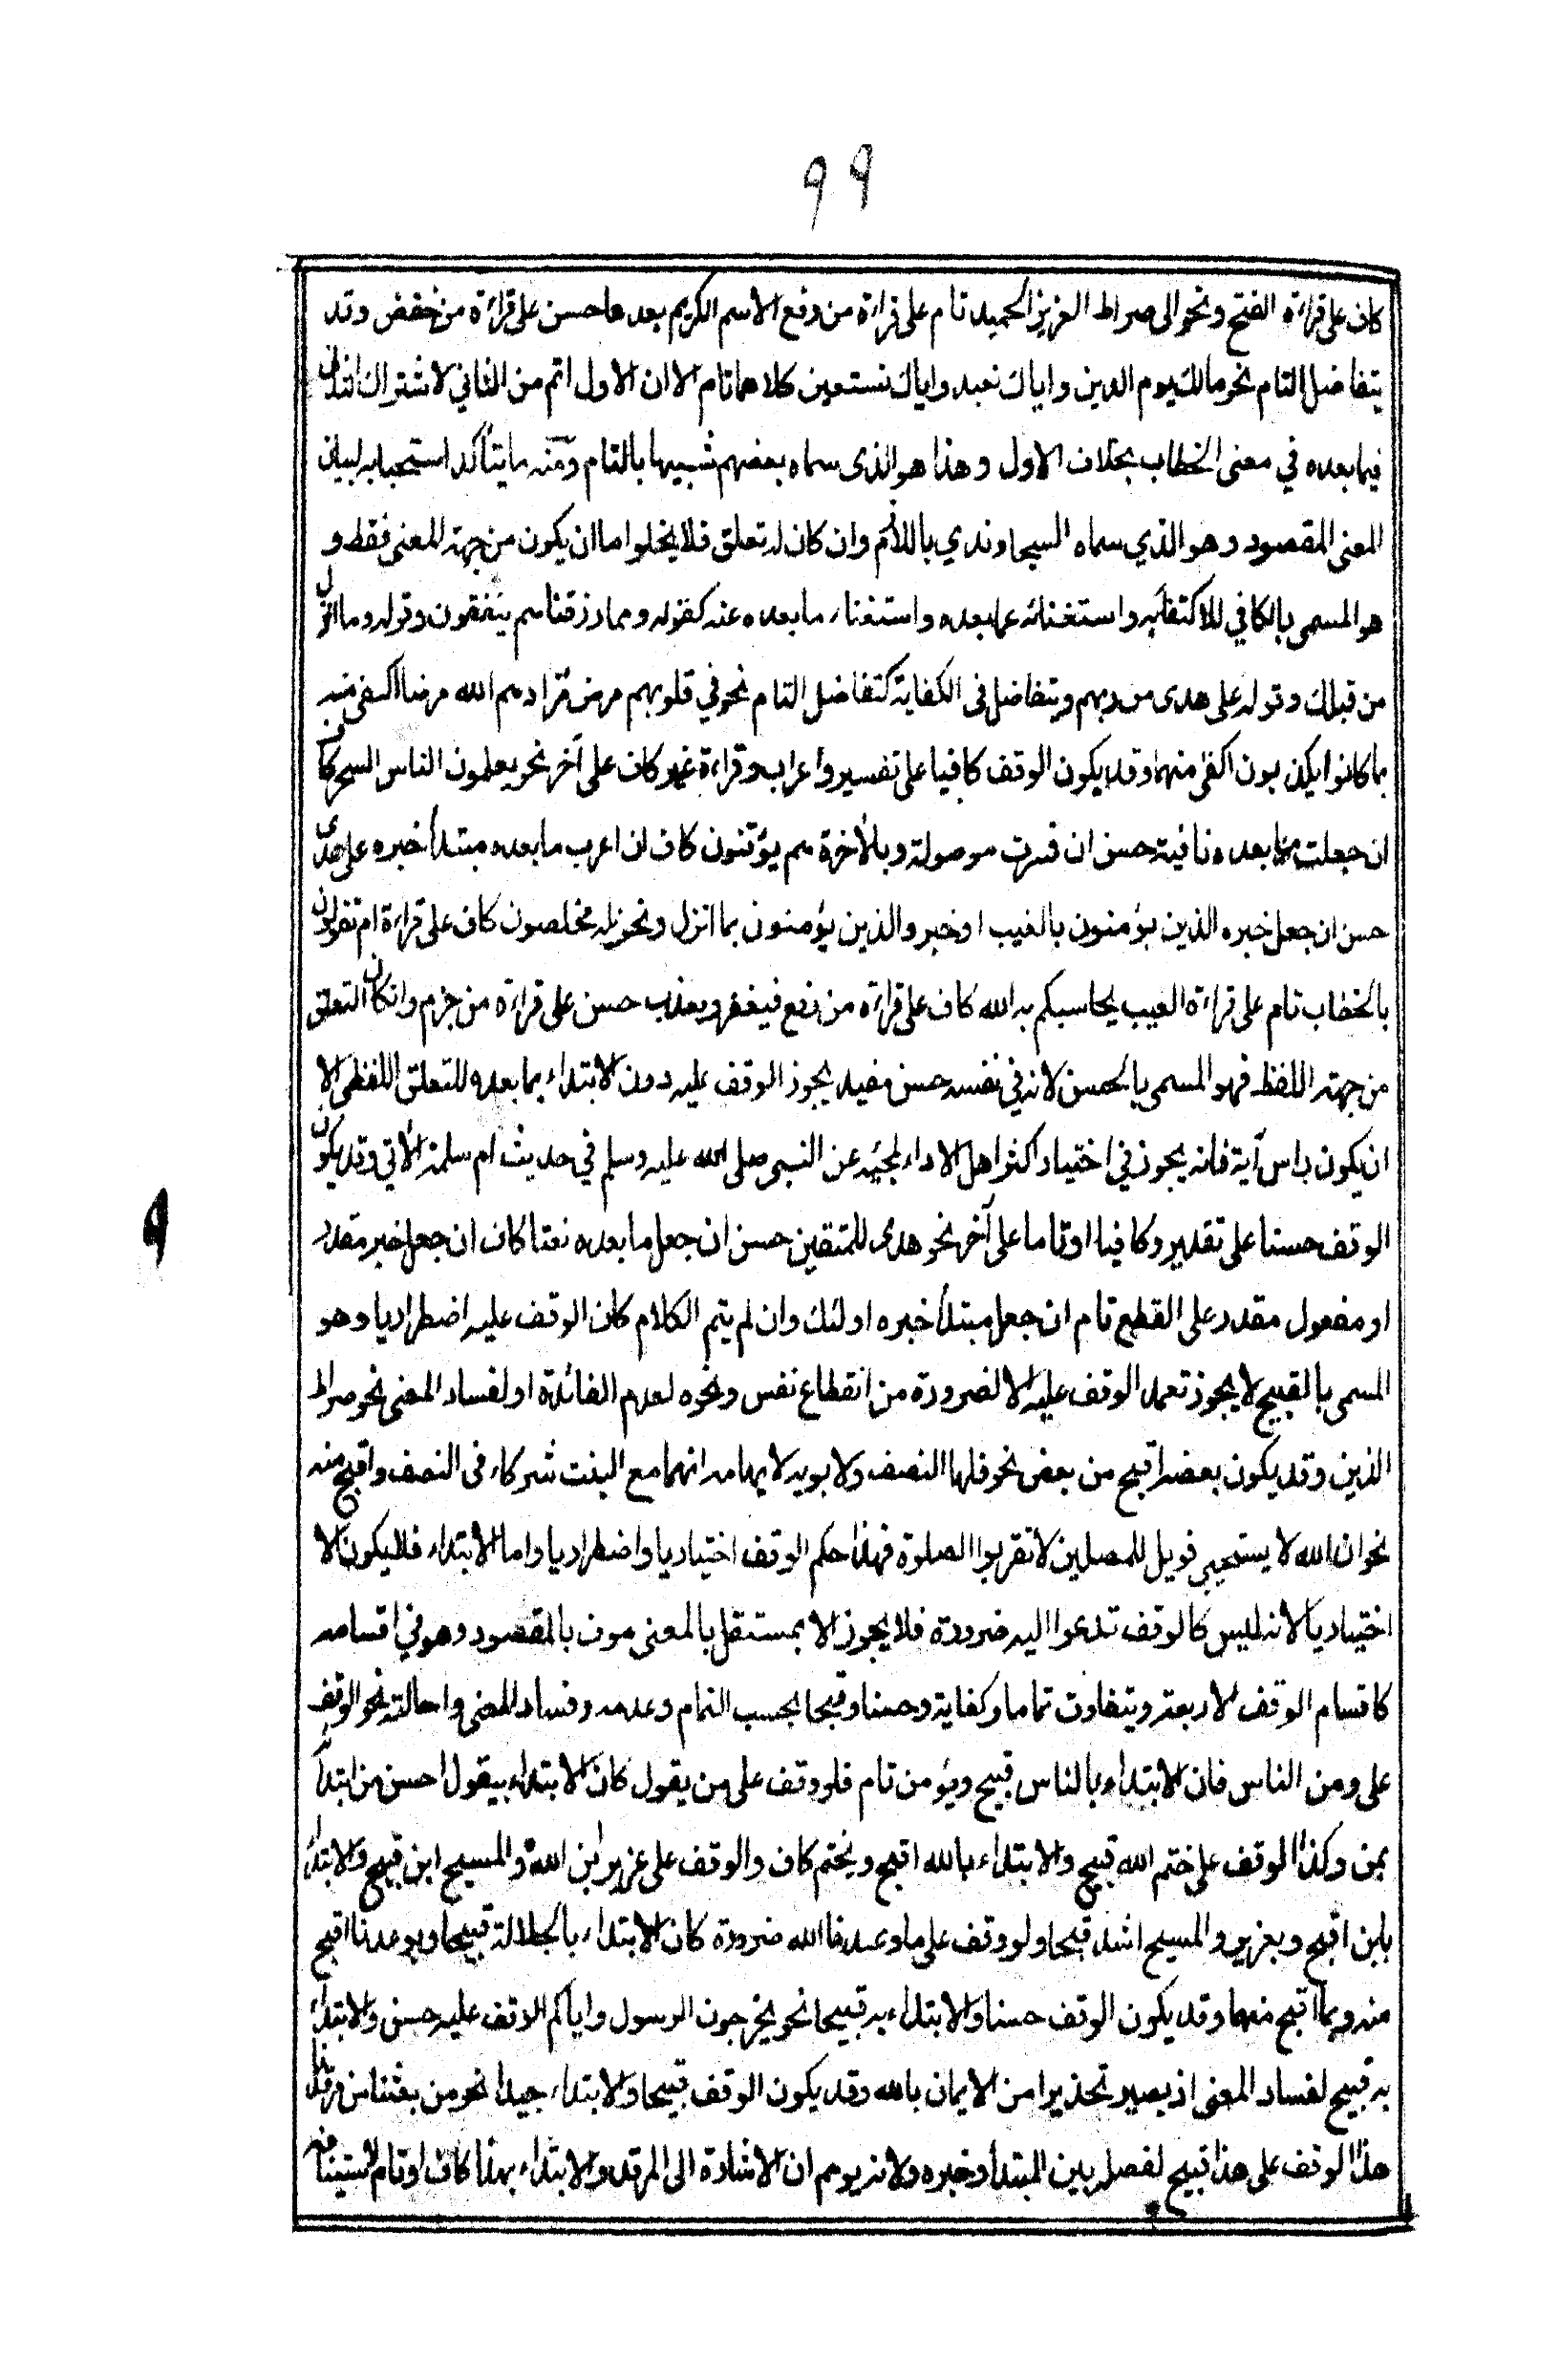 ٩٩
كاف على قراءة الفتح ونحو الى صراط العزيز الحميد تام على قراءة من رفع الاسم الكريم بعدها حسن على قراءة من خفض وقد
يتفاضل التام نحو مالك يوم الدين واياك نعبد واياك نستعين كلاهما تام الا ان الاول اتم من الثاني لاشتراك الثاني
فيما بعده في معنى الخطاب بخلاف الاول وهذا هو الذى سماه بعضهم شبيها بالتام ومنه ما يتأكد استحبابه لبيان
المعنى المقصود وهو الذي سماه السجاوندي باللازم وان كان له تعلق فلا يخلوا اما ان يكون من جهة المعنى فقط و
هو المسمى بالكافي للاكتفاء به واستغنائه عما بعده واستغناء ما بعده عنه كقوله ومما رزقناهم ينفقون وقوله وما انزل
من قبلك وقوله على هدى من ربهم ويتفاضل فى الكفاية كتفاضل التام نحو في قلوبهم مرض فزادهم الله مرضا اكفى منه
بما كانوا يكذبون اكفى منهما وقد يكون الوقف كافيا على تفسير واعراب وقراءة غير كاف على آخر نحو يعلمون الناس السحر كاف
ان جعلت ما بعده نافية حسن ان فسرت موصولة وبالآخرة هم يوقنون كاف ان اعرب ما بعده مبتدأ خبره على هدى
حسن ان جعل خبره الذين يؤمنون بالغيب او خبر والذين يؤمنون بما انزل ونحو له مخلصون كاف على قراءة ام تقولون
بالخطاب تام على قراءة الغيب يحاسبكم به الله كاف على قراءة من رفع فيغفر ويعذب حسن على قراءة من جزم وان كان التعلق
من جهة اللفظ فهو المسمى بالحسن لانه في نفسه حسن مفيد يجوز الوقف عليه دون الابتداء بما بعده للتعلق اللفظى الا
ان يكون راس آية فانه يجوز في اختيار اكثر اهل الاداء لمجيئه عن النبى صلى الله عليه وسلم في حديث ام سلمة الآتي وقد يكون
الوقف حسنا على تقدير وكافيا او تاما على آخر نحو هدى للمتقين حسن ان جعل ما بعده نعتا كاف ان جعل خبر مقدر
او مفعول مقدر على القطع تام ان جعل مبتدأ خبره اولئك وان لم يتم الكلام كان الوقف عليه اضطراريا وهو
المسمى بالقبيح لا يجوز تعمد الوقف عليه الا لضرورة من انقطاع نفس ونحوه لعدم الفائدة او لفساد المعنى نحو صراط
الذين وقد يكون بعضه اقبح من بعض نحو فلها النصف ولابويه لايهامه انهما مع البنت شركاء فى النصف واقبح منه
نحو ان الله لا يستحيى فويل للمصلين لا تقربوا الصلوة فهذا حكم الوقف اختياريا واضطراريا واما الابتداء فلا يكون الا
اختياريا لانه ليس كالوقف تدعوا اليه ضرورة فلا يجوز الا بمستقل بالمعنى موف بالمقصود وهو في اقسامه
كاقسام الوقف الاربعة ويتفاوت تماما وكفاية وحسنا وقبحا بحسب التمام وعدمه وفساد المعنى واحالته نحو الوقف
على ومن الناس فان الابتداء بالناس قبيح ويؤمن تام فلو وقف على من يقول كان الابتداء بيقول احسن من ابتدائه
بمن وكذا الوقف على ختم الله قبيح والابتداء بالله اقبح وبختم كاف والوقف على عزير بن الله والمسيح ابن قبيح والابتداء
بابن اقبح وبعزير والمسيح اشد قبحا ولو وقف على ما وعدنا الله ضرورة كان الابتداء بالجلالة قبيحا وبوعدنا اقبح
منه وبما اقبح منهما وقد يكون الوقف حسنا والابتداء به قبيحا نحو يخرجون الرسول واياكم الوقف عليه حسن والابتداء
به قبيح لفساد المعنى اذ يصير تحذيرا من الايمان بالله وقد يكون الوقف قبيحا والابتداء جيدا نحو من بعثنا من مرقدنا
هذا الوقف على هذا قبيح لفصله بين المبتدأ وخبره ولانه يوهم ان الاشارة الى المرقد والابتداء بهذا كاف او تام لاستينافه
٩